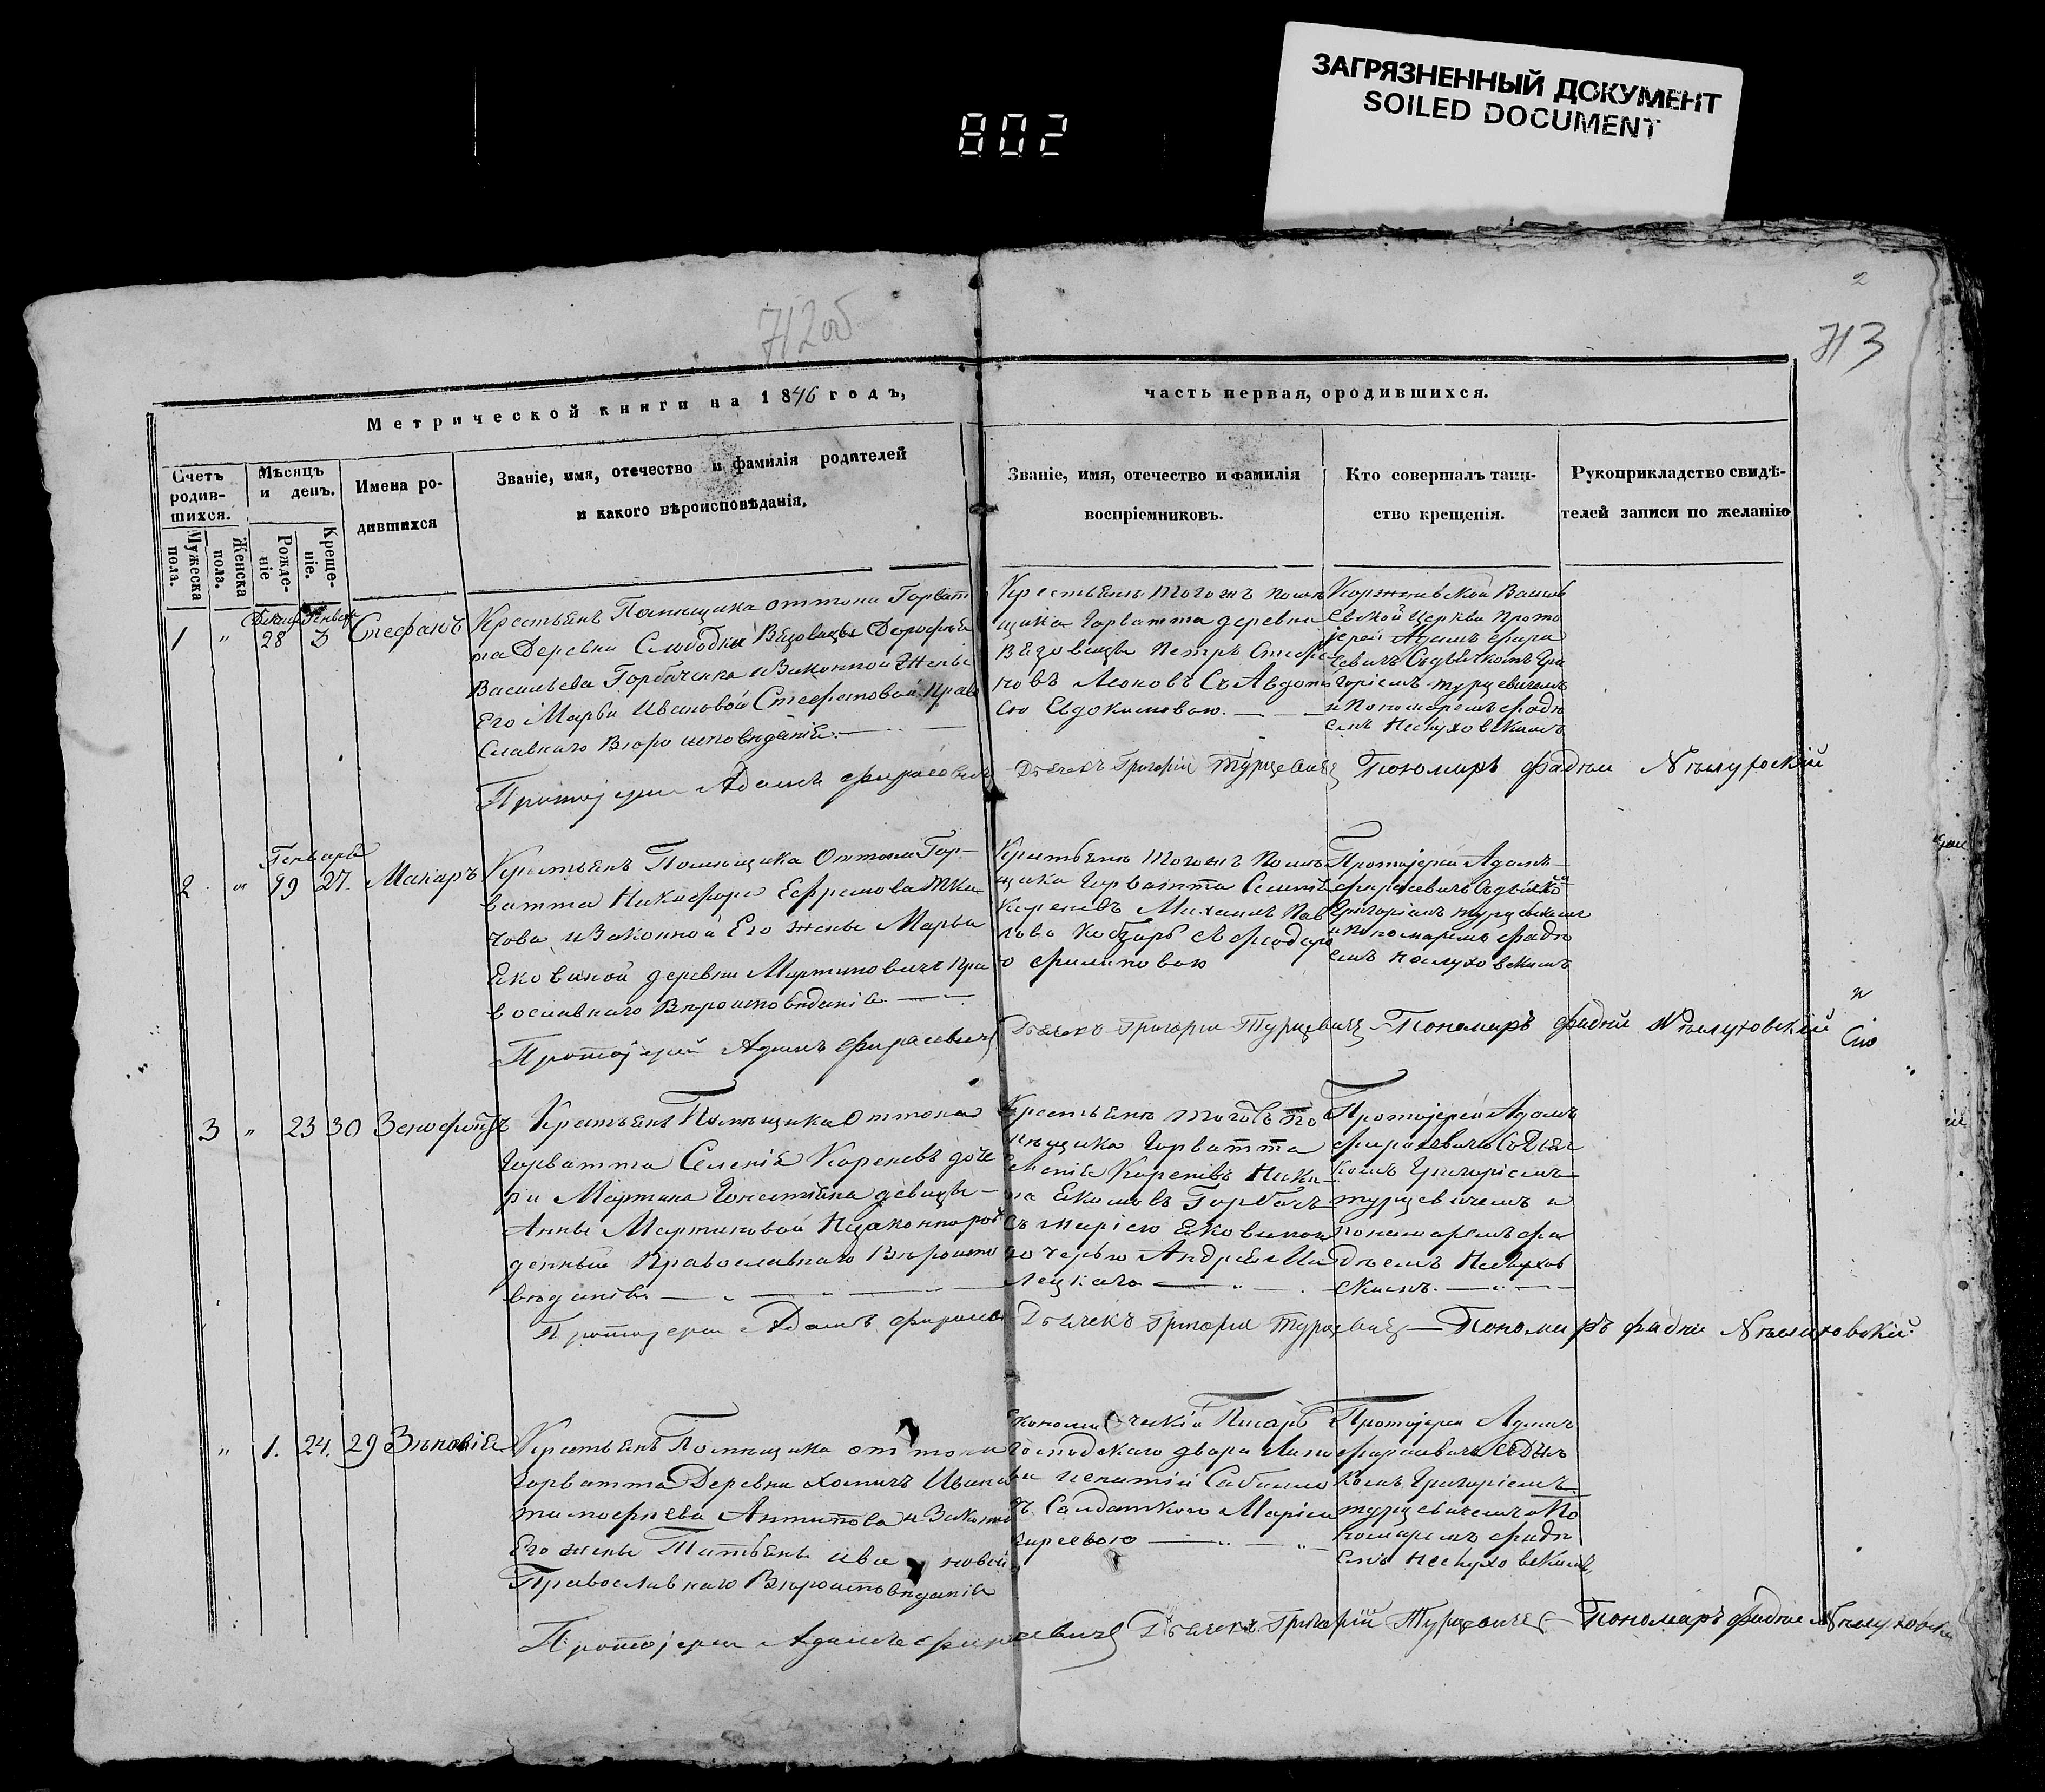 ЗАГРЯЗНЕННЫЙ ДОКУМЕНТ
SOILED DOCUMENT
802
2
712об
713
Метрической книги на 1846 годъ,
часть первая, ородившихся.
Счетъ родив-шихся.
Мѣсяцъ и денъ.
Имена ро-дившихся
Званіе, имя, отечество и фамилія родителей
и какого вѣроисповѣданія.
Званіе, имя, отечество и фамилія
воспріемниковъ.
Кто совершалъ таин-
ство крещенія.
Рукоприкладство свидѣ-
телей записи по желанію
Мужеска пола.
Женска пола.
Рожде-ніе
Креще-ніе.
1 " 28 3 Стефанъ
Крестьянъ Помѣщика Оттона Горват
та Деревни Слободки Дорофѣя
Васильева Горбаченка и Законной Жены
Его Марьи Ивановой Стефановой Право
славнаго Вѣро исповѣданія.
Крестьяне тогожъ помѣ
щика Горватта деревни
Петръ Стефа
новъ Леоновъ Съ Авдоть
ею Евдокимовою.
церкви прото
іерей Адамъ Фира
севичъ Съ дьячкомъ Гри
горіемъ Турцевичемъ
и Пономаремъ Фадѣ
емъ
Протоіерей Адамъ Фирасевичъ
Дьячекъ Григорій Турцевичъ
Пономарь Фадѣй
Генваря
2. " 19 27. Макаръ
Крестьянъ Помѣщика Оттона Гор-
ватта Никифора Ефремова Тка
чова и Законной Его жены Марьи
деревни Мартиновичъ Пра
вославнаго Вѣроисповѣданія
Крестьяне тогожъ помѣ
щика Горватта Селенія
Кореневъ Михаилъ Пав
ловъ Кобзарь съ Феодоро
ю Филиповою
Протоіерей Адамъ
Фирасевичъ Съ дьячко
Григоріемъ Турцевичемъ
и пономаремъ Фадѣ
емъ
Протоіерей Адамъ Фирасевичъ
Дьячекъ Григорій Турцевичъ
Пономарь Фадѣй
3 " 23 30
Крестьянъ Помѣщика Оттона
Горватта Селенія Кореневъ доче
ри Мартина девицы
Анны Мартиновой Незаконнорож
денный Православнаго Вѣроиспо
вѣданія
Крестьяне тогожъ по
мѣщика Горватта
Селенія Кореневъ Ники
та Екимовъ Горбачъ
съ Маріею
дочерью Андрея
Протоіерей Адамъ
Фирасевичъ Съ Дьяч
комъ Григоріемъ
Турцевичемъ и
пономаремъ Фа
дѣемъ
скимъ.
Протоіерей Адамъ Фирасев
Дьячекъ Григорій Турцевичъ
Пономарь Фадѣй
" 1. 24. 29 Зѣновія
Крестьянъ Помѣщика Оттона
Горватта Деревни Хомичъ Ивана
Тимофѣева Антипова и Законно
Его жены Татьяны Ивановой
Православнаго Вѣроисповѣданія
Економическій Писарь
Господскаго двора
Игнатій
съ Салдаткою Маріею
Протоіерей Адамъ
Фирасевичъ Съ Дьяч
комъ Григоріемъ
Турцевичемъ и По
номаремъ Фадѣ
емъ
Протоіерей Адамъ Фирасевичъ
Дьячекъ Григорій Турцевичъ
Пономарь Фадѣй